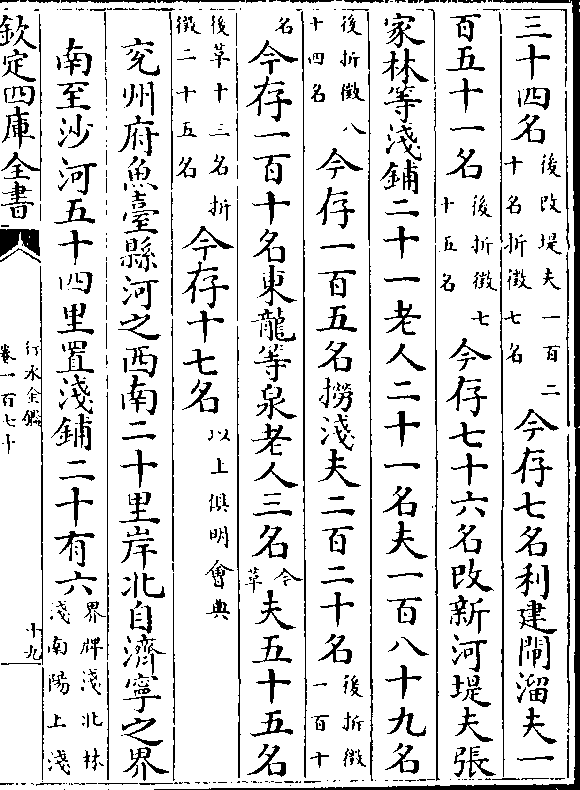 三十四名後改堤夫一百二十名折徵七名今存七名利建閘溜夫一
百五十一名後折徵七十五名今存七十六名改新河堤夫張
家林等淺鋪二十一老人二十一名夫一百八十九名
後折徵八十四名今存一百五名撈淺夫二百二十名後折徵一百十
名今存一百十名東龍等泉老人三名今草夫五十五名
後草十三名折徵二十五名今存十七名以上俱明會典
兖州府魚臺縣河之西南二十里岸北自濟寧之界
南至沙河五十四里置淺鋪二十有六界牌淺北林淺南陽上淺
欽定四庫全書
行水金鑑
卷一百七十
十九